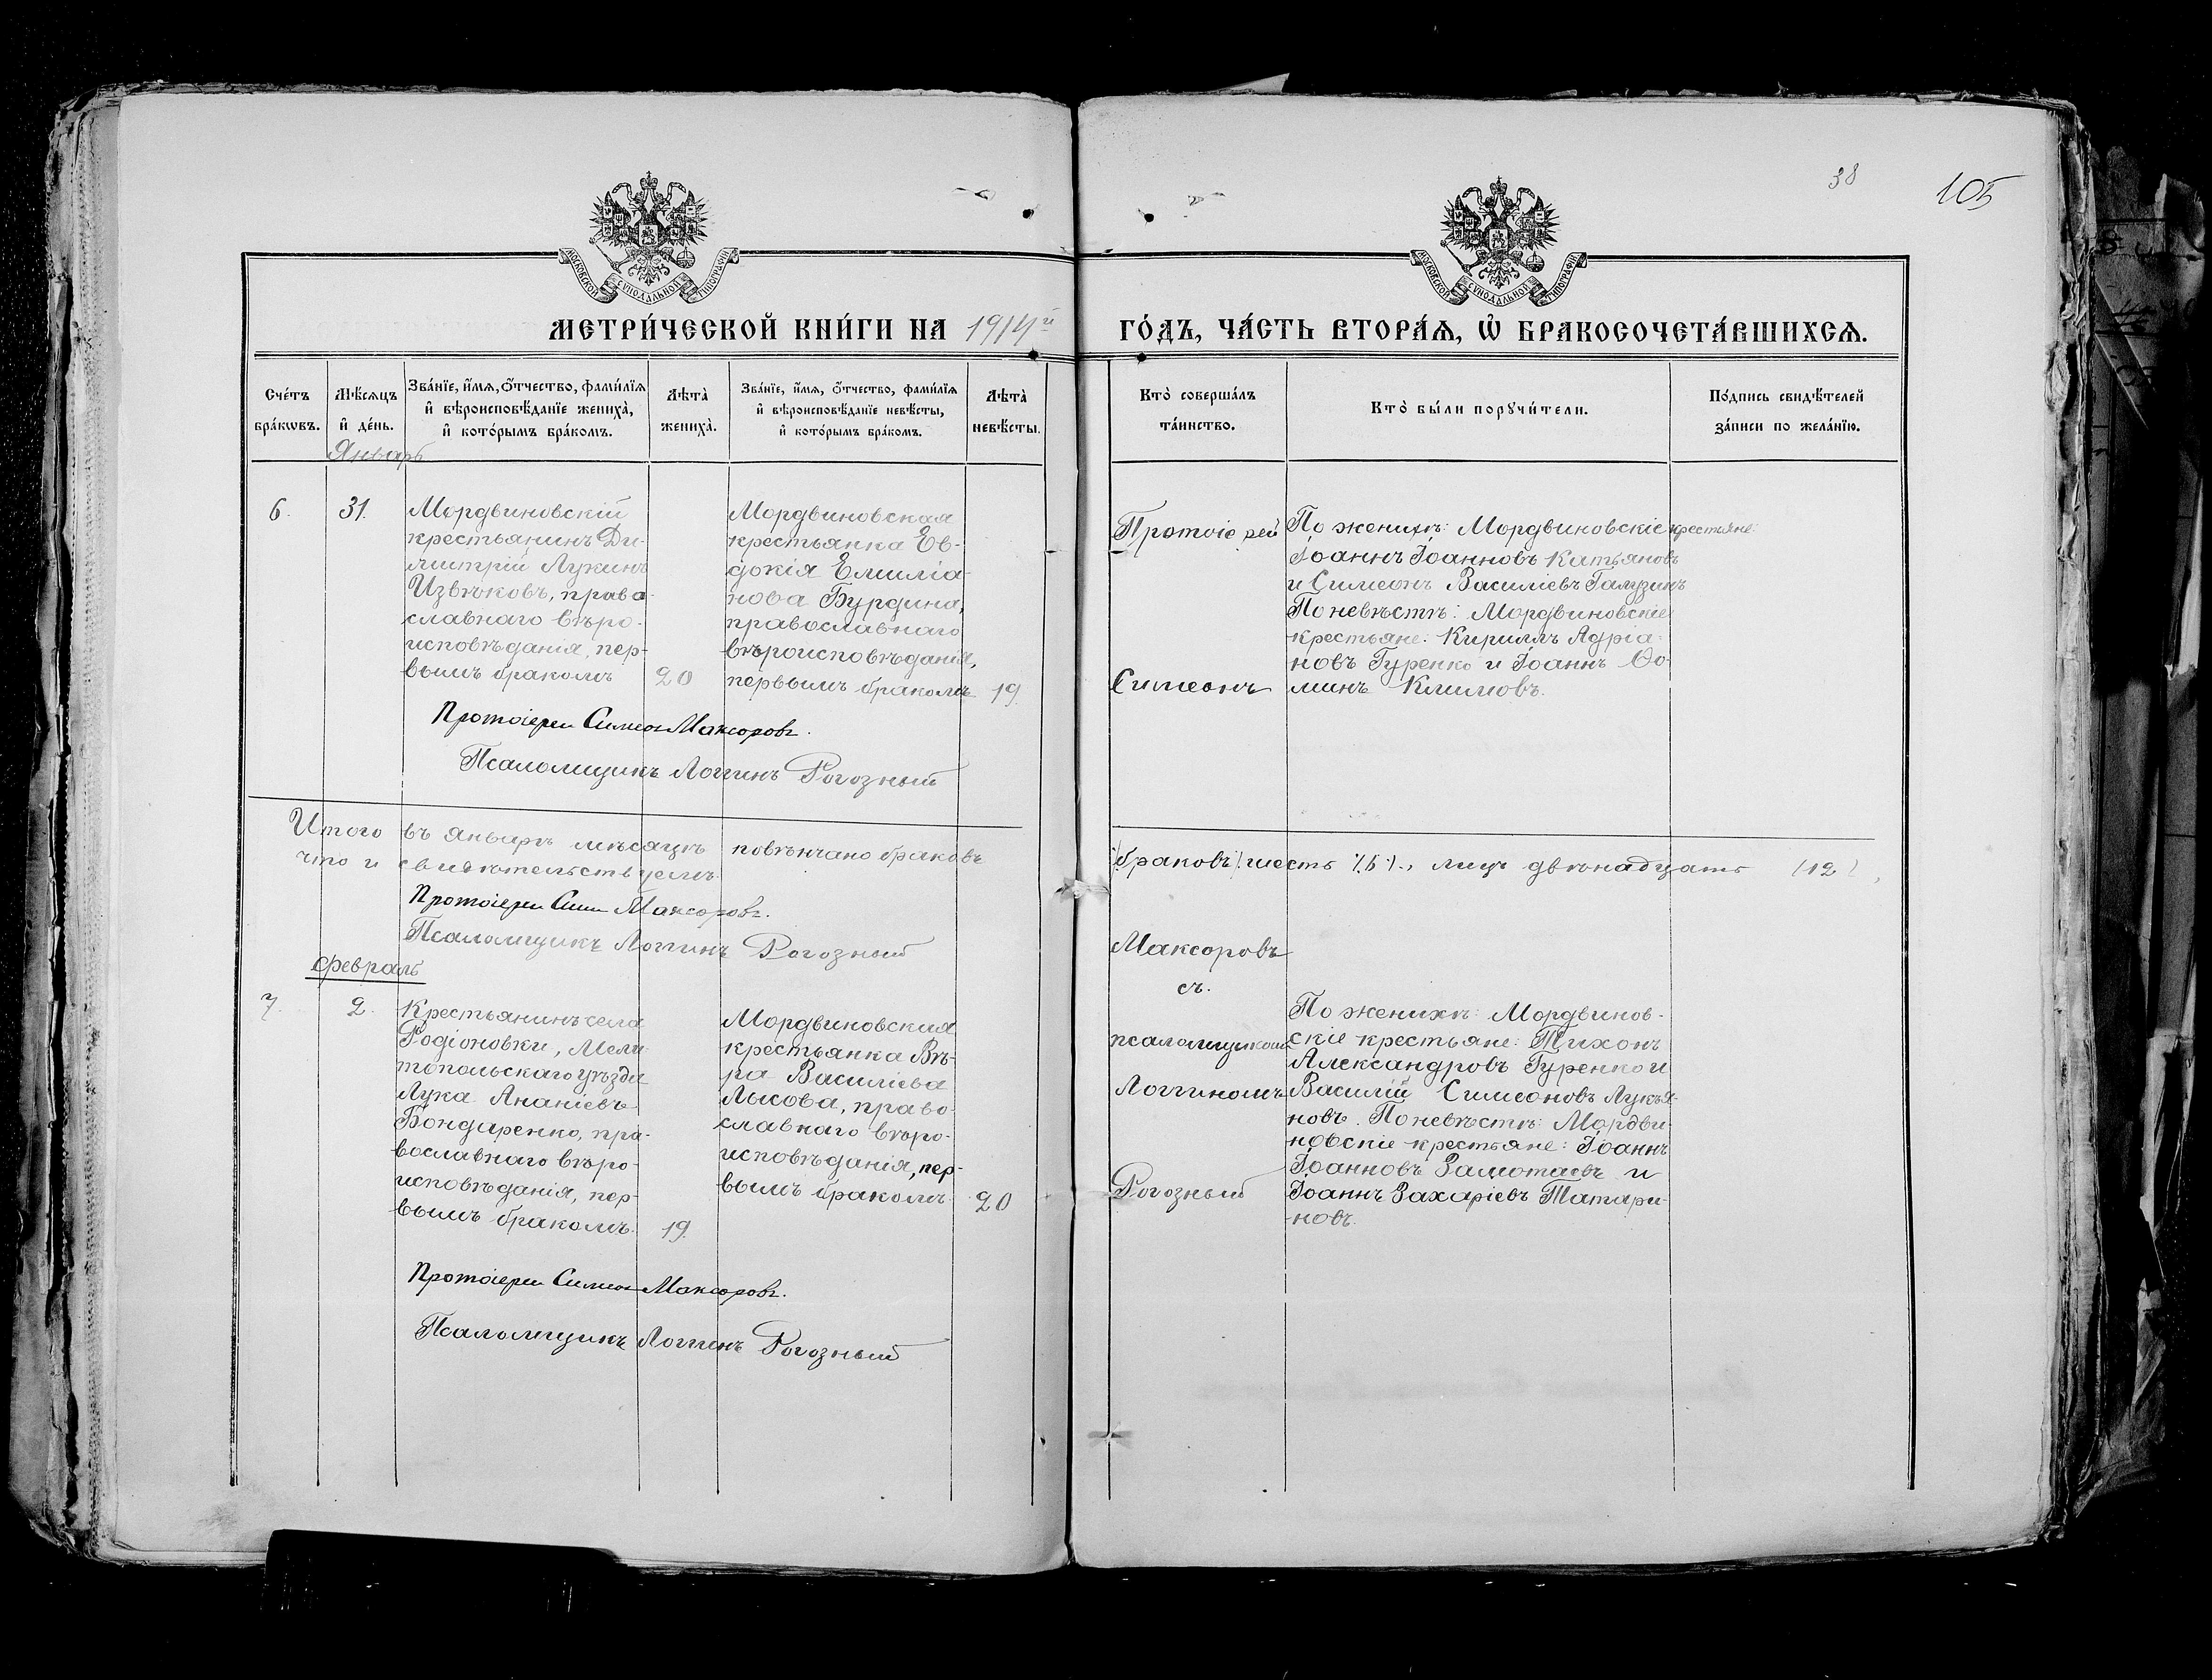 38
105
МОСКОВСКОЙ СѴНОДАЛЬНОЙ ТИПОГРАФІИ
МОСКОВСКОЙ СѴНОДАЛЬНОЙ ТИПОГРАФІИ
МЕТРИ́ЧЕСКОЙ КНИ́ГИ НА 1914й
ГО́ДЪ, ЧА́СТЬ ВТОРА́Ѧ, Ѡ҆ БРАКОСОЧЕТА́ВШИХСѦ.
Сче́тъ бра́кѡвъ.
Мѣ́сѧцъ и҆ де́нь.
Зва́нїе, и҆́мѧ, ѻ҆́тчество, фами́лїѧ и҆ вѣроисповѣ́данїе жениха̀, и҆ кото́рымъ бра́комъ.
Лѣ́та̀ жениха̀.
Зва́нїе, и҆́мѧ, ѻ҆́тчество, фами́лїѧ и҆ вѣроисповѣ́данїе невѣ́сты, и҆ кото́рымъ бра́комъ.
Лѣ́та̀ невѣ́сты.
Кто̀ соверша́лъ та́инство.
Кто̀ бы́ли порꙋчи́тели.
По́дпись свидѣ́телей за́писи по жела́нїю.
Январь
6.
31.
Мордвиновскій
крестьянинъ Ди-
митрій Лукинъ
Извѣковъ, право-
славнаго вѣро-
исповѣданія, пер-
вымъ бракомъ
20
Мордвиновская
крестьянка Ев-
докія Емиліа-
нова Бурдина,
православнаго
вѣроисповѣданія,
первымъ бракомъ
19.
Протоіерей
Симеонъ
По женихѣ: Мордвиновскіе крестьяне:
Іоаннъ Іоанновъ Катьяновъ
и Симеонъ Василіевъ Галузинъ
По невѣстѣ: Мордвиновскіе
крестьяне: Кириллъ Адріа-
новъ Гуренко и Іоаннъ Ѳо-
минъ Климовъ.
Протоіерей Симеон Максоровъ.
Псаломщикъ Логгинъ Рогозный
Итого въ январѣ мѣсяцѣ повѣнчано браковъ
/браковъ/ шесть /6/., лицъ двѣнадцать (12),
что и свидѣтельствуемъ.
Протоіерей Сим Максоровъ.
Псаломщикъ Логгинъ Рогозный
Максоровъ
съ.
псаломщикомъ
Логгиномъ
Рогозный
февраль
7.
2.
Крестьянинъ села
Родіоновки, Мели-
топольскаго уѣзда
Лука Ананіевъ
Бондаренко, пра-
вославнаго вѣро-
исповѣданія, пер-
вымъ бракомъ.
19.
Мордвиновския
крестьянка Вѣ-
ра Василіева
Лысова, право-
славнаго вѣро-
исповѣданія, пер-
вымъ бракомъ.
20
По женихѣ: Мордвинов-
скіе крестьяне: Тихонъ
Александровъ Гуренко и
Василій Симеоновъ Лукья-
новъ. По невѣстѣ: Мордви-
новскіе крестьяне: Іоаннъ
Іоанновъ Замотаевъ и
Іоаннъ Захаріевъ Татари-
новъ.
Протоіерей Симеон Максоровъ.
Псаломщикъ Логгинъ Рогозный